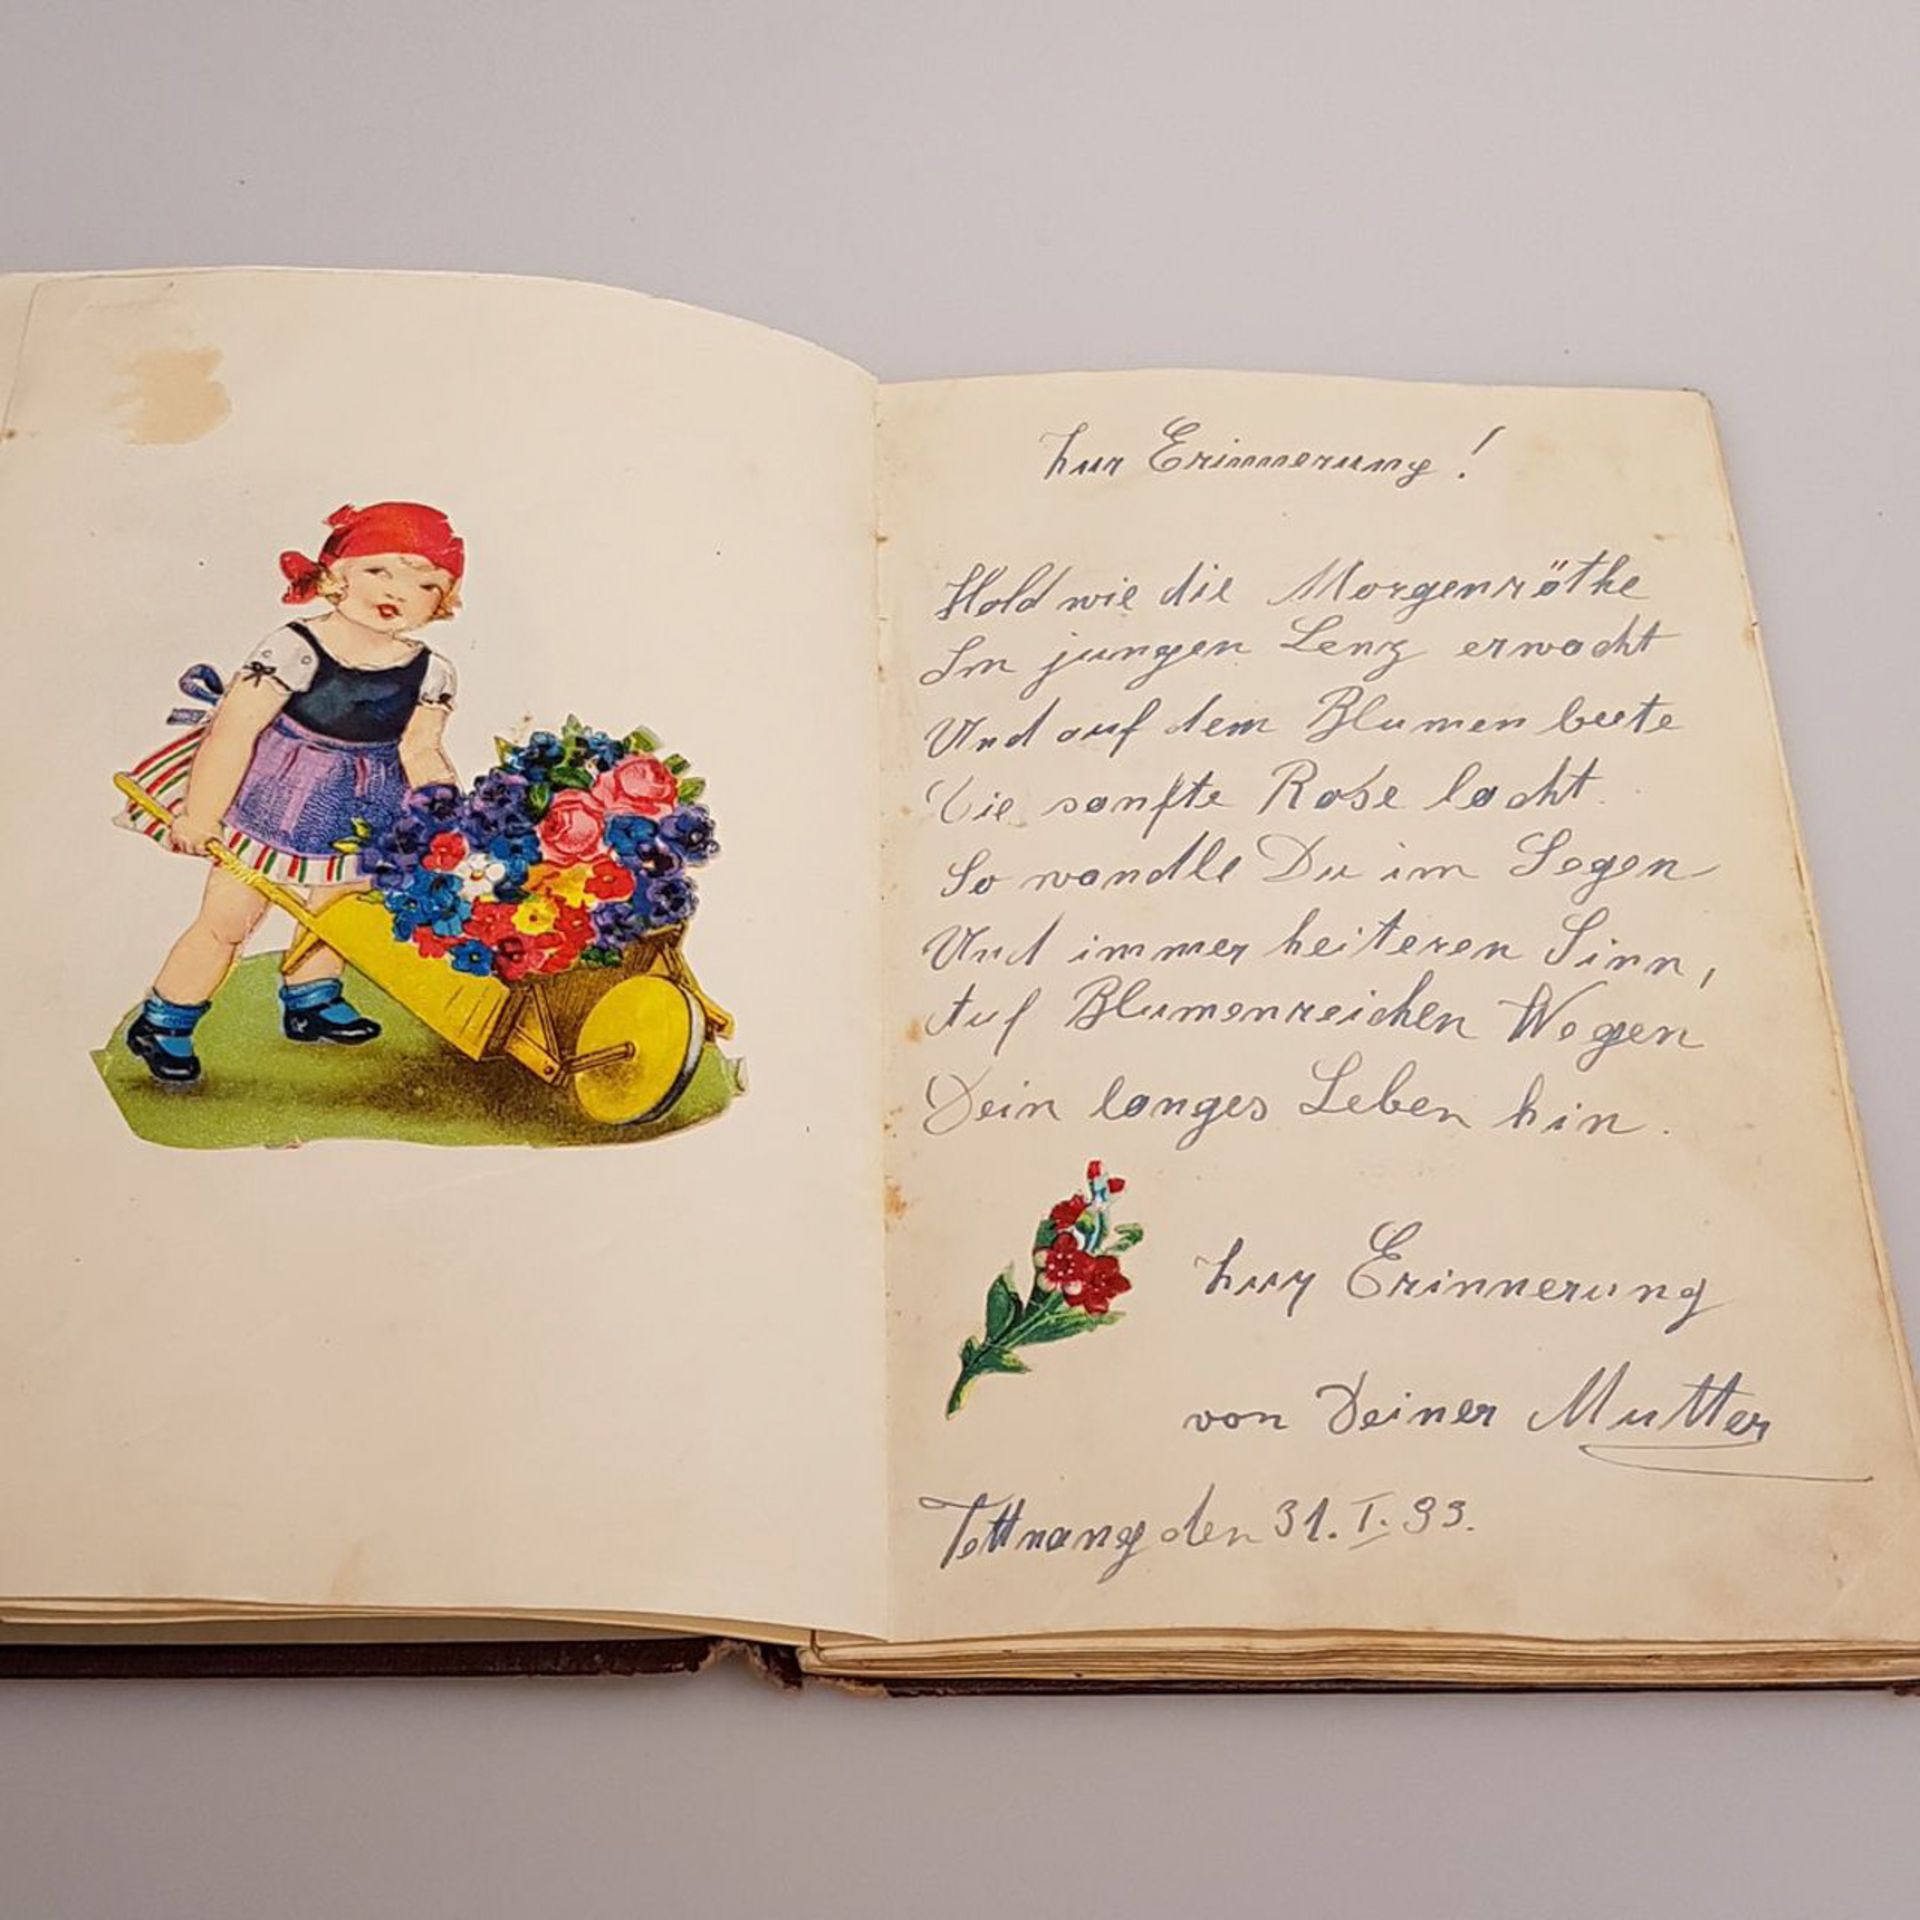 Zur Erinnerung!
Hold wie die Morgenröthe
Im jungen Lenz erwacht
Und auf dem Blumenbeete
Die sanfte Rose lacht.
So wandle Du im Segen
Und immer heiteren Sinn,
Auf Blumenreichen Wegen
Dein langes Leben hin.
Zur Erinnerung
von Deiner Mutter
Tettnang den 31. I. 33.